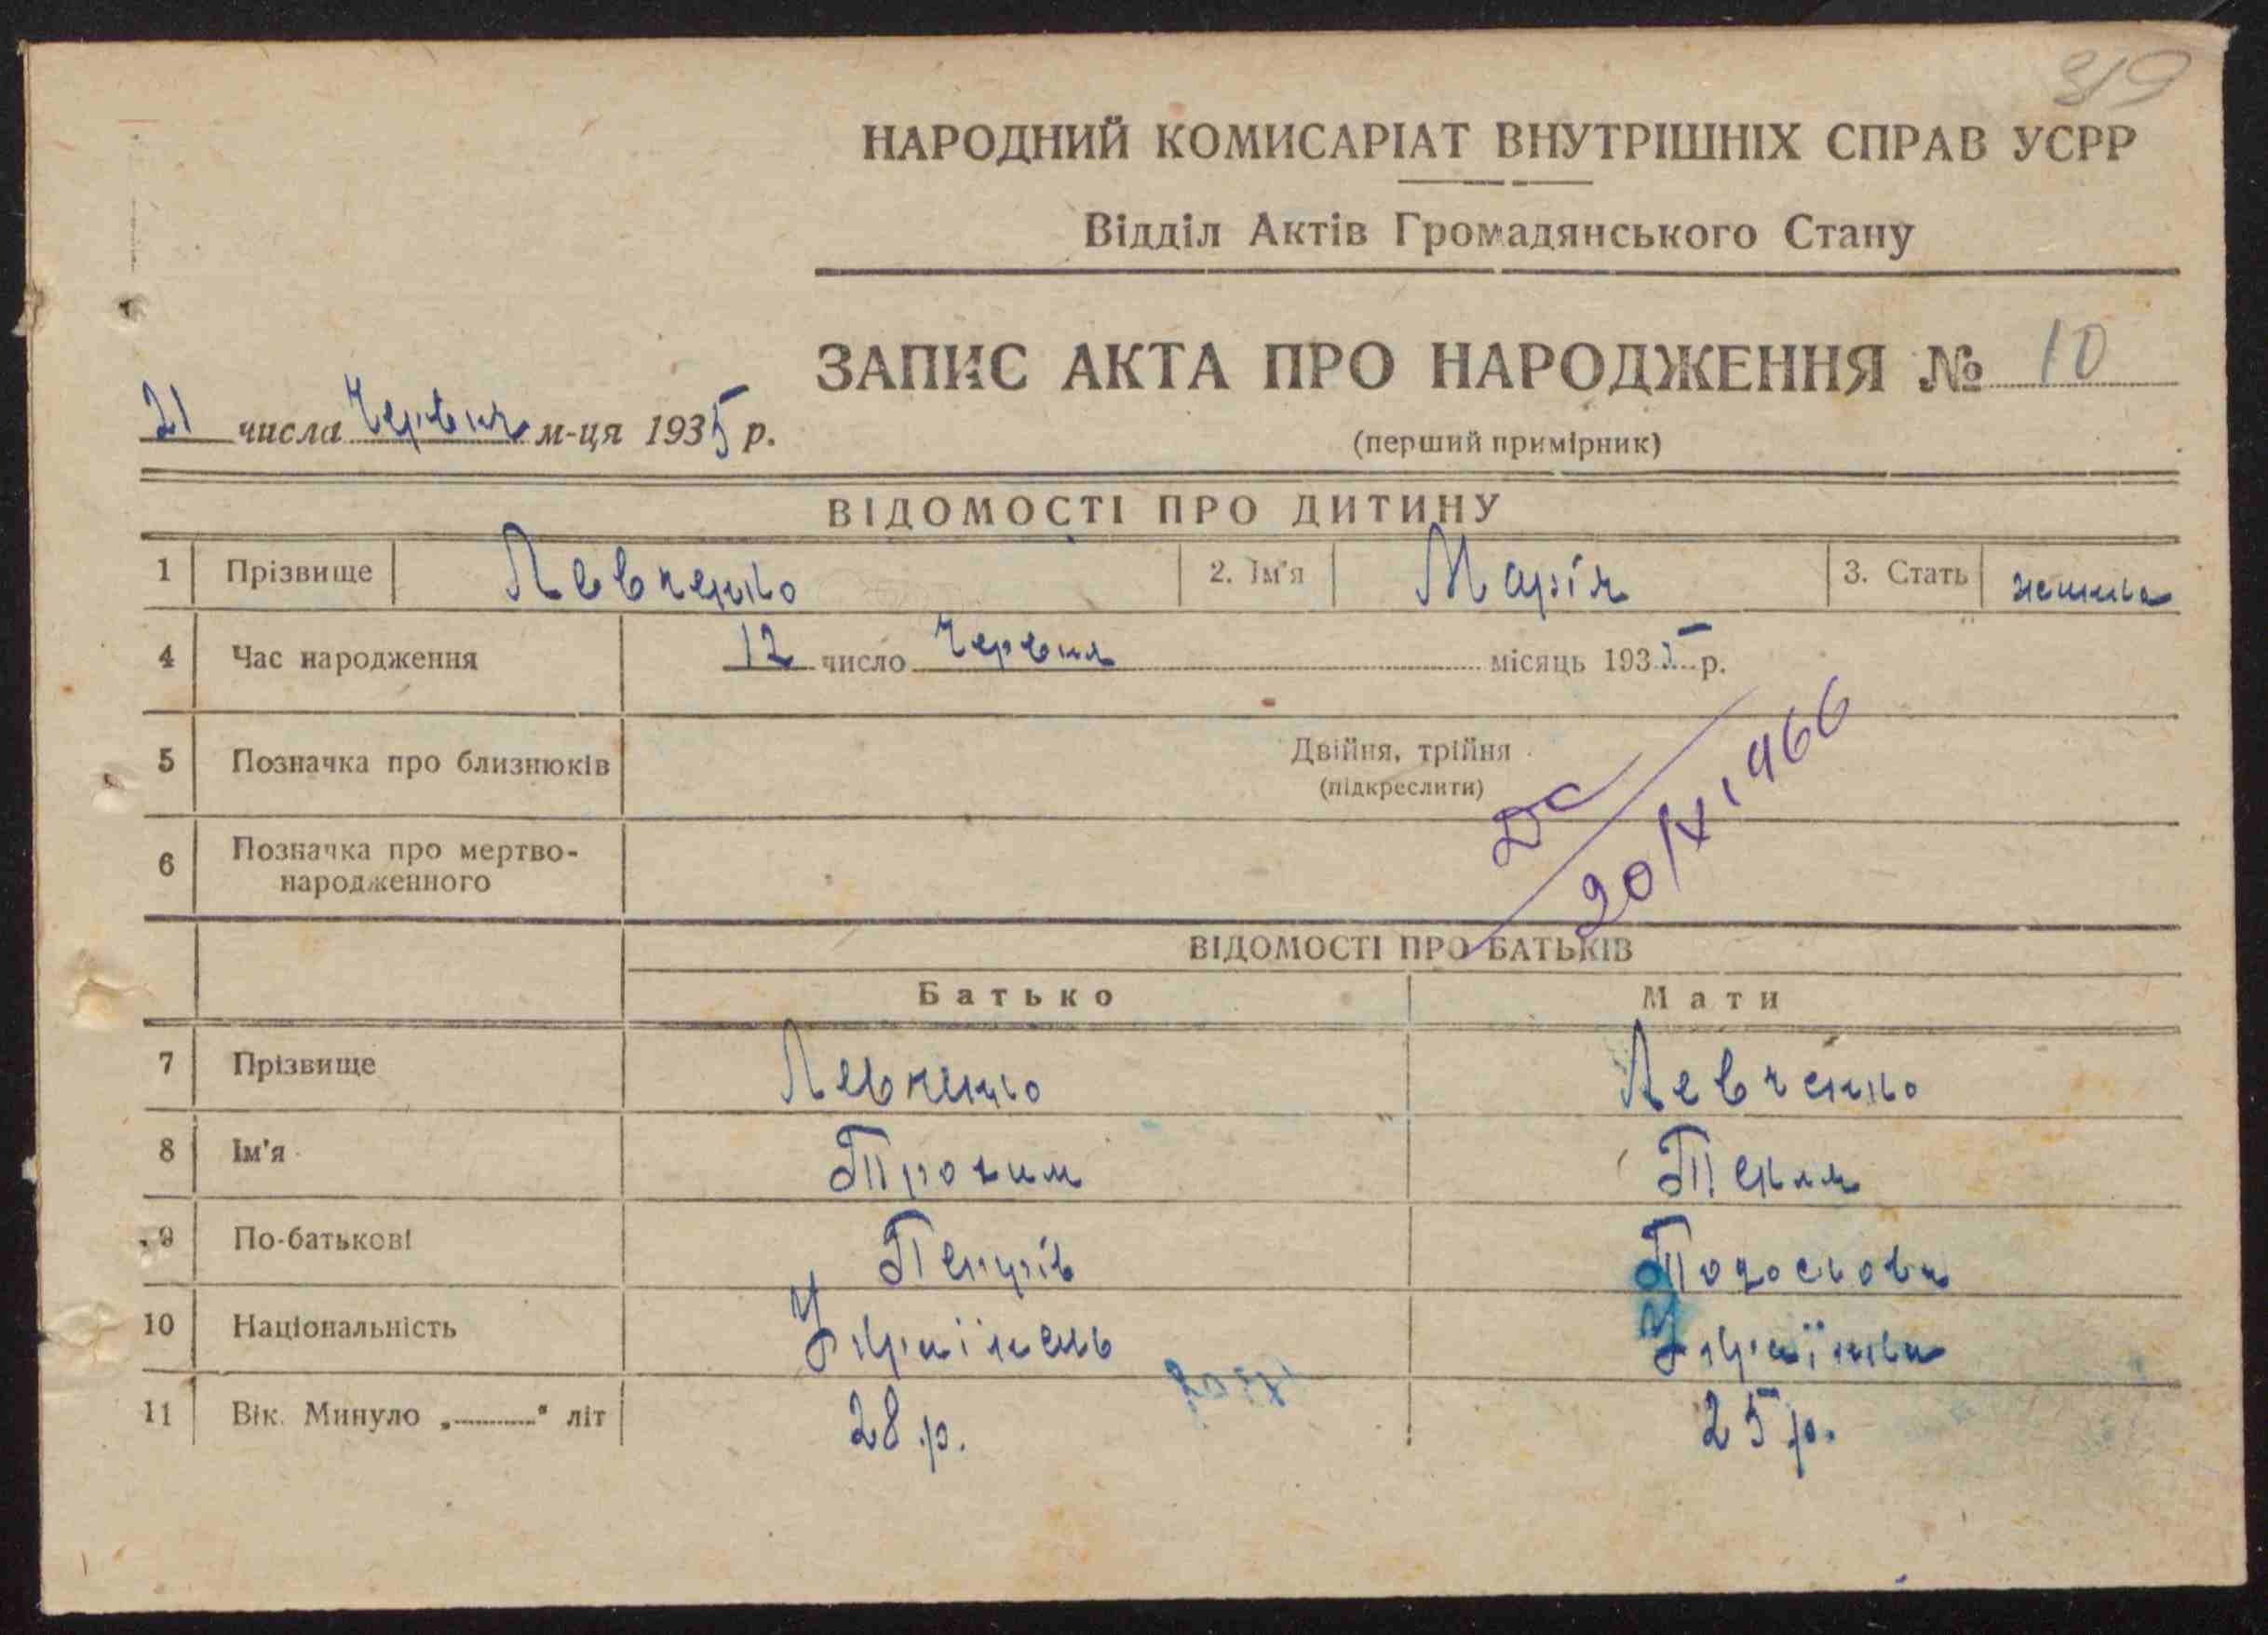 319
НАРОДНИЙ КОМИСАРІАТ ВНУТРІШНІХ СПРАВ УСРР
Відділ Актів Громадянського Стану
ЗАПИС АКТА ПРО НАРОДЖЕННЯ № 10
21 числа Червня м-ця 1935 р.
(перший примірник)
ВІДОМОСТІ ПРО ДИТИНУ
1 Прізвище Левченко 2. Ім'я Марія 3. Стать
4 Час народження 12 число Червня місяць 1935 р.
5 Позначка про близнюків Двійня, трійня
(підкреслити)
6 Позначка про мертво-
народженного
20/XI 1966
ВІДОМОСТІ ПРО БАТЬКІВ
Батько Мати
7 Прізвище Левченко Левченко
8 Ім'я Трохим Текля
9 По-батькові
10 Національність Українець Українка
11 Вік. Минуло „..........“ літ 28 р. 25 р.